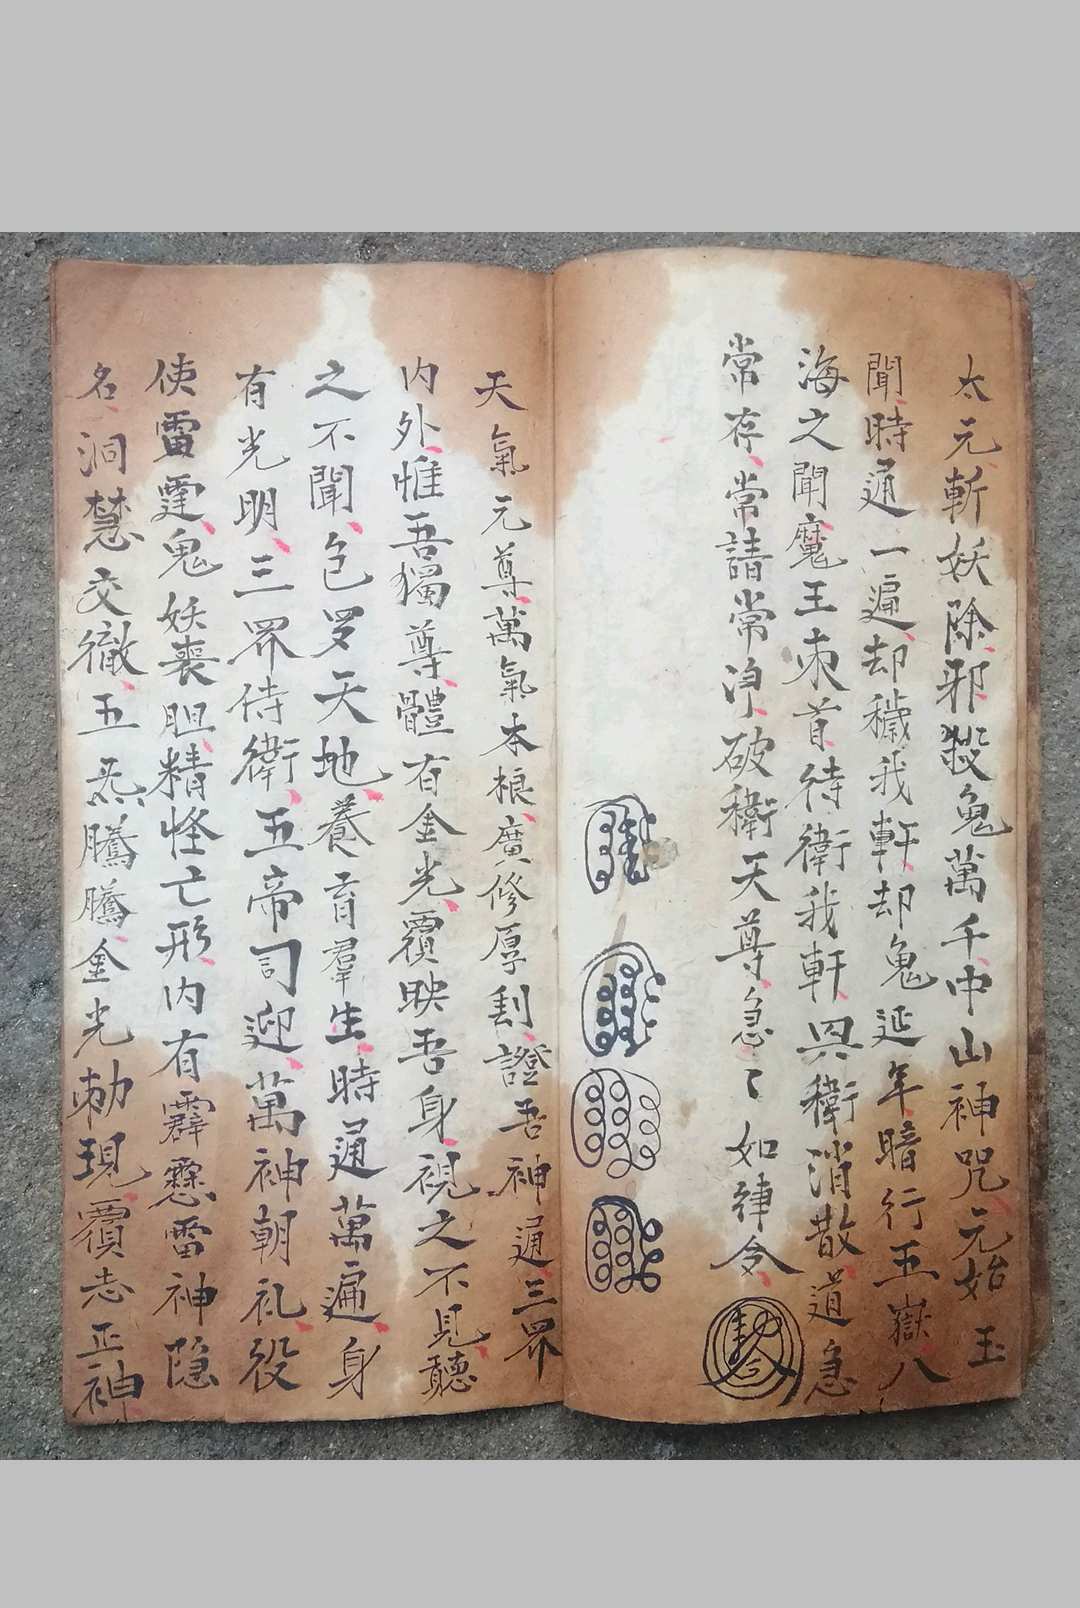 太元斬妖除邪殺鬼萬千中山神咒元始玉
聞時通一遍却穢我軒却鬼延年暗行五嶽八
海之聞魔王束首待衛我軒㓁衛消散道急
常存常請常淨破衛天尊急〻如律令
天氣元尊萬氣本根廣修厚刦證吾神通三界
內外惟吾獨尊體有金光覆映吾身視之不見聽
之不聞包罗天地養育羣生時通萬遍身
有光明三界侍衛五帝司迎萬神朝礼役
使雷霆鬼妖喪胆精怪亡形內有霹靂雷神隐
名洞慧交徹五炁騰騰金光勅現覆志正神